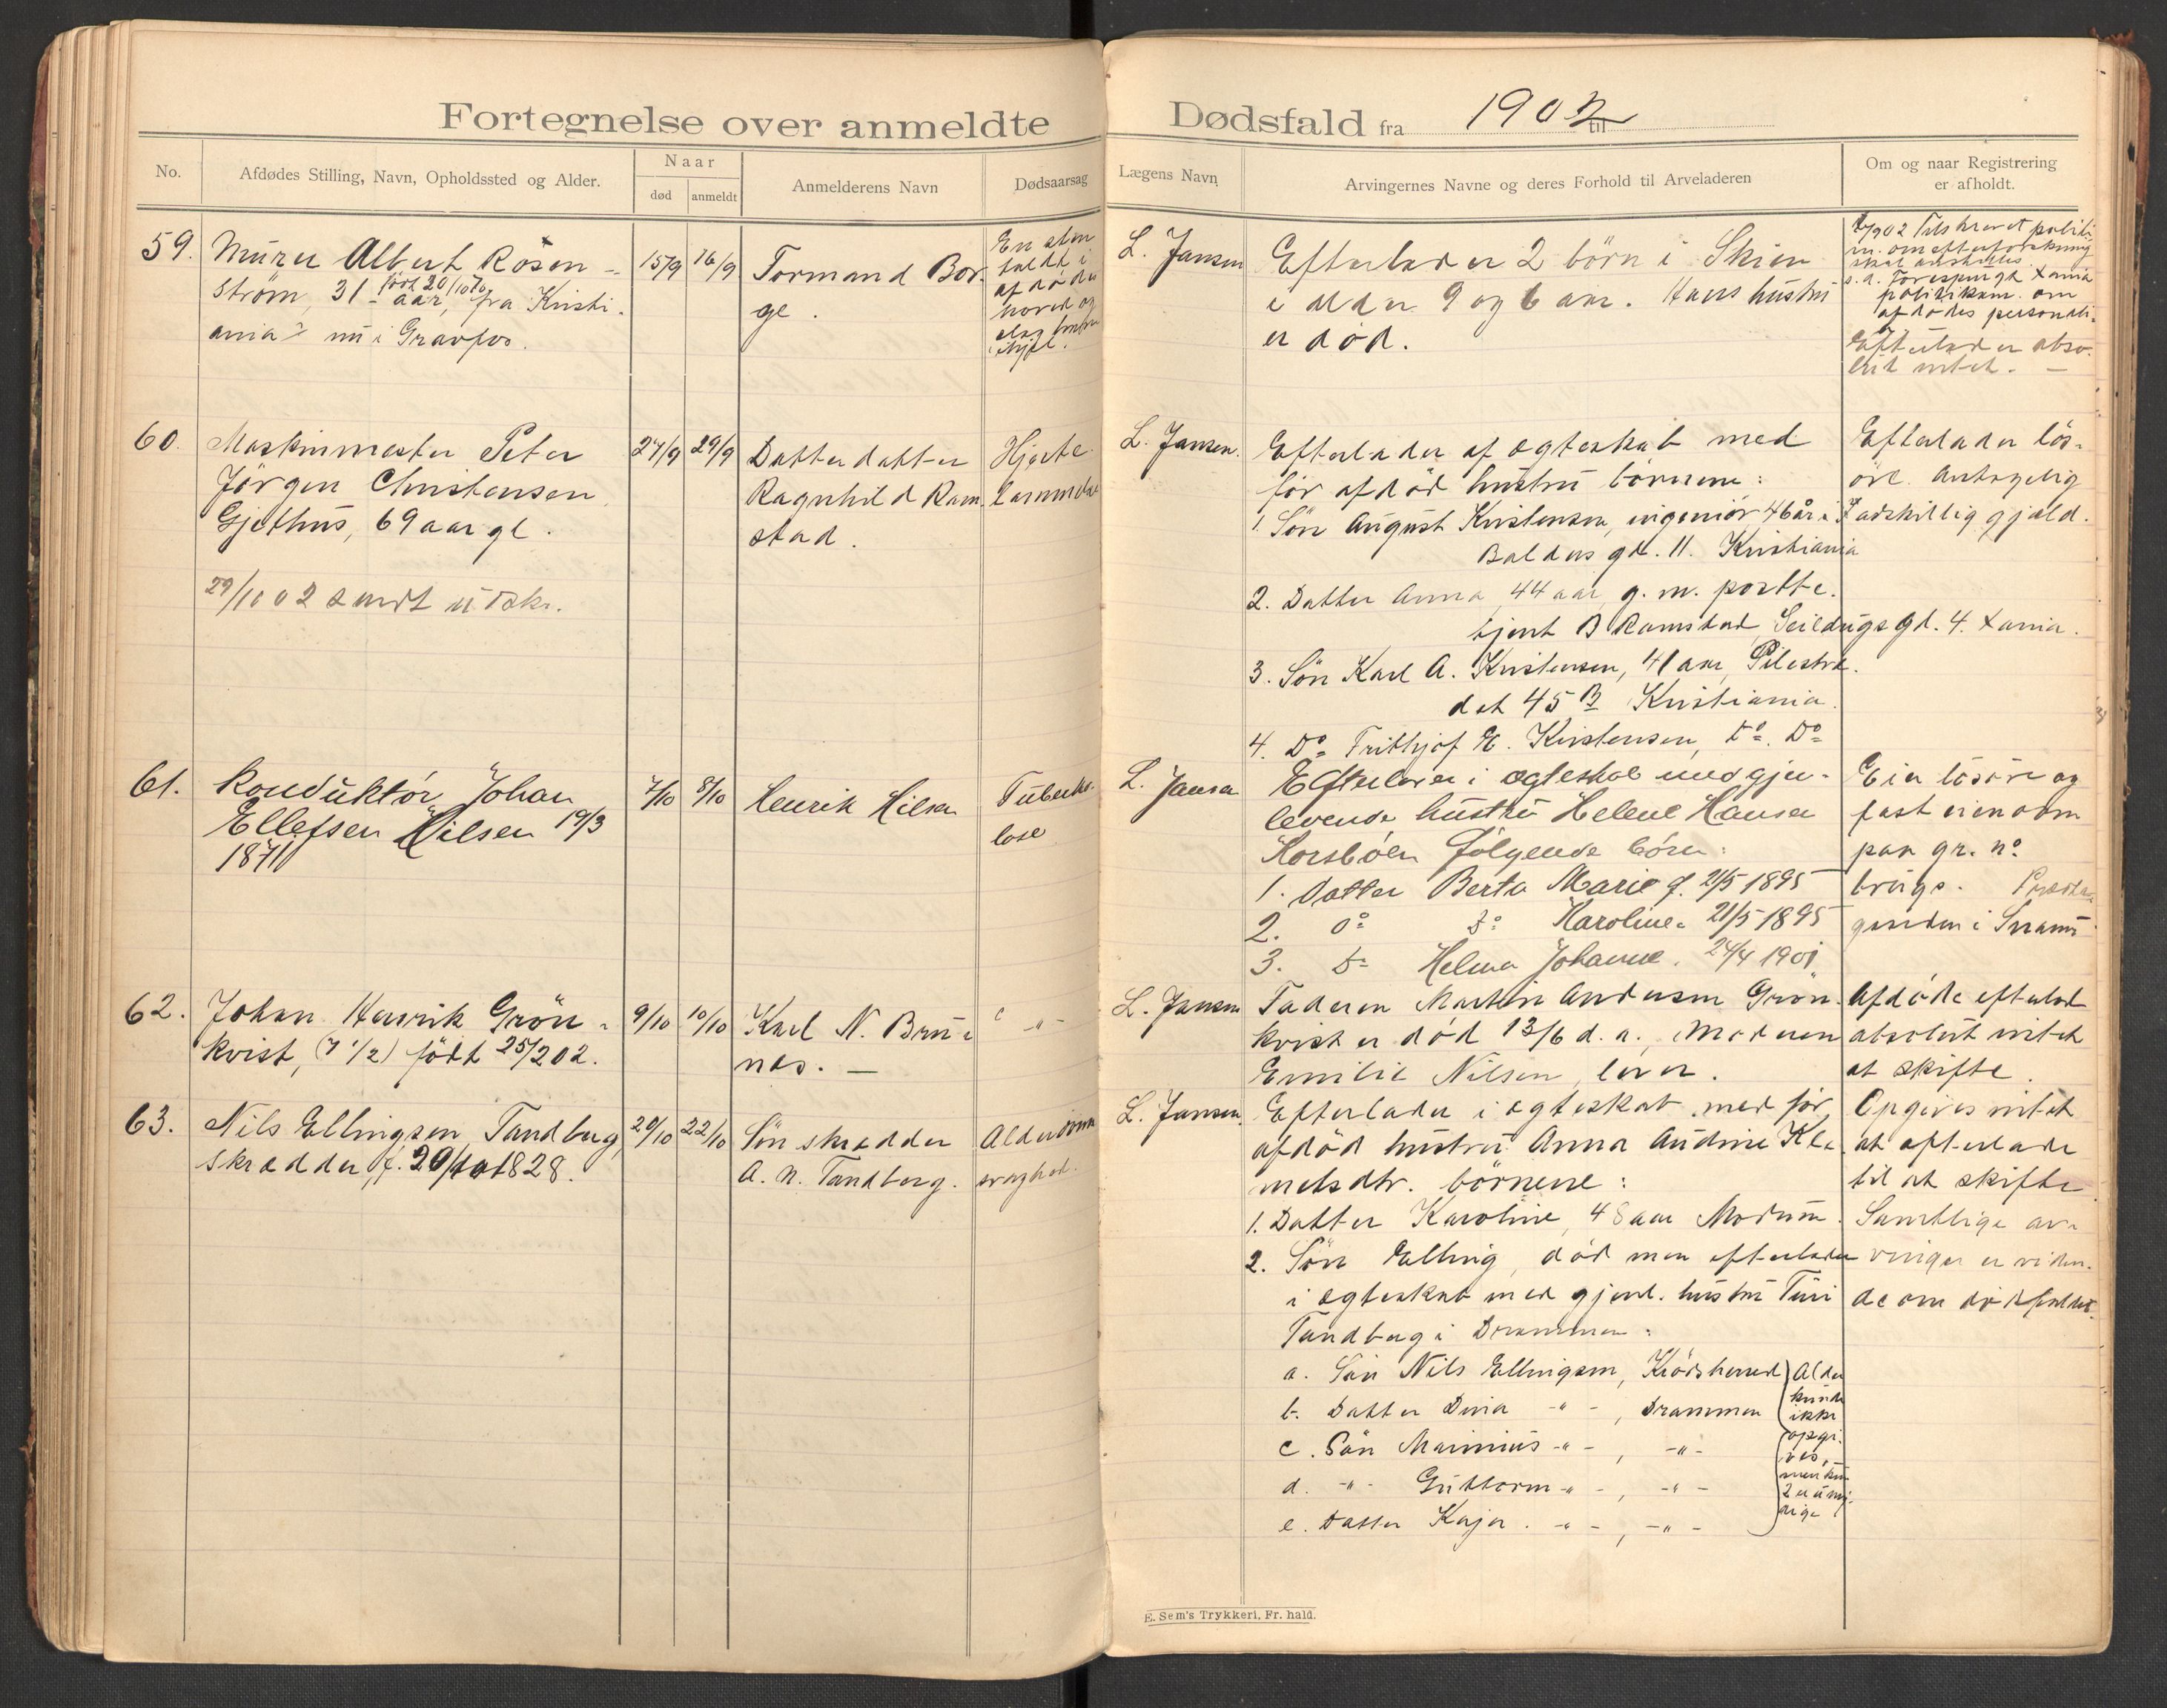 Fortegnelse over anmeldte Dødsfald fra 1902 til
No.
Afdødes Stilling, Navn, Opholdssted og Alder.
Naar
død
anmeldt
Anmelderens Navn
Dødsaarsag
Lægens Navn
Arvingernes Navne og deres Forhold til Arveladeren
Om og naar Registrering
er afholdt.
59.
Murer Albert Rosen-
ström, 31 aar, fra Kristi-
født 20/10 70
ania nu i Gravfos.
15/9
16/9
Formand Bor-
ge.
En sten
faldt i
afdødes
hoved og
slog
ihjel.
L. Jansen
Efterlader 2 børn i Skien
i alder 9 og 6 aar. Hans hustru
er død.
1902 Tilskrevet politi-
om efterforskning
skal anstilles
s. d. Forespurgt Xania
politikam. om
afdødes personali-
Efterlader abso-
lut intet. —
60.
Maskinmester Peter
Jörgen Christensen
Gjethus, 69 aar gl.
29/10 02 sendt udskr.
27/9
29/9
Datterdatter
Ragnhild Ram-
stad.
Hjerte-
lammelse
L. Jansen.
Efterlader af ægteskab med
før afdød hustru børnene:
1. Søn August Kristensen, ingeniør 46 år i
Balders gd. 11. Kristiania
2. Datter Anna 44 aar g. m. postbe-
tjent B Ramstad, Seildugsgd. 4. Xania.
3. Søn Karl A. Kristensen, 41 aar, Pilestræ-
det 45 B Kristiania.
4. Do Frithjof E. Kristensen, Do. Do
Efterlader løs-
øre. Antagelig
adskillig gjæld.
61.
Konduktör Johan
Ellefsen Hilsen 19/3
1871
7/10
8/10
Henrik Hilsen
Tuberku-
lose
L. Jansen
Efterlader i ægteskab med gjen-
levende hustru Helene Hansen
Korsbøen følgende børn:
1. Datter Berta Marie f. 21/5 1895
2. Do Do Karoline " 21/5 1895
3. Do Helma Johanne " 24/4 1901
Eier løsøre og
fast eiendom
paa gr. no
brugs.
gaarden i Snarum
62.
Johan Henrik Grön-
kvist, (7 1/2) født 25/2 02.
9/10
10/10
Karl N. Bru-
nes. —
— " —
L. Jansen
Faderen Martin Andersen Grön-
kvist er død 13/6 d. a., Moderen
Emilie Nilsen lever.
Afdøde efterlod
absolut intet
at skifte.
63.
Nils Ellingsen Tandberg,
skrædder, f. 20/10 1828.
20/10
22/10
Søn skrædder
A. N. Tandberg.
Alderdoms
svaghed.
L. Jansen.
Efterlader i ægteskab med før
afdød hustru Anna Andrine Kle-
metsdtr. børnene:
1. Datter Karoline, 48 aar Modum.
2. Søn Elling, død men efterlader
i ægteskab med gjenl. hustru Turi
Tandberg i Drammen:
a. Søn Nils Ellingsen, Krödsherred
b. Datter Dina - " - , Drammen
c. Søn Marinius - " - , - " -
d. - " - Guttorm - " - , - " -
e. Datter Kaja. - " - , - " -
Alder
kunde
ikke
opgi-
ves,
men kun
2 er umy-
dige
Opgives intet
at efterlade
til at skifte
Samtlige ar-
vinger er viden-
de om dødsfaldet.
E. Sem's Trykkeri, Fr. hald.